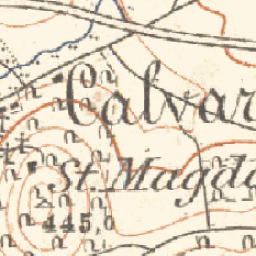 Calvar
St. Magda
445,0